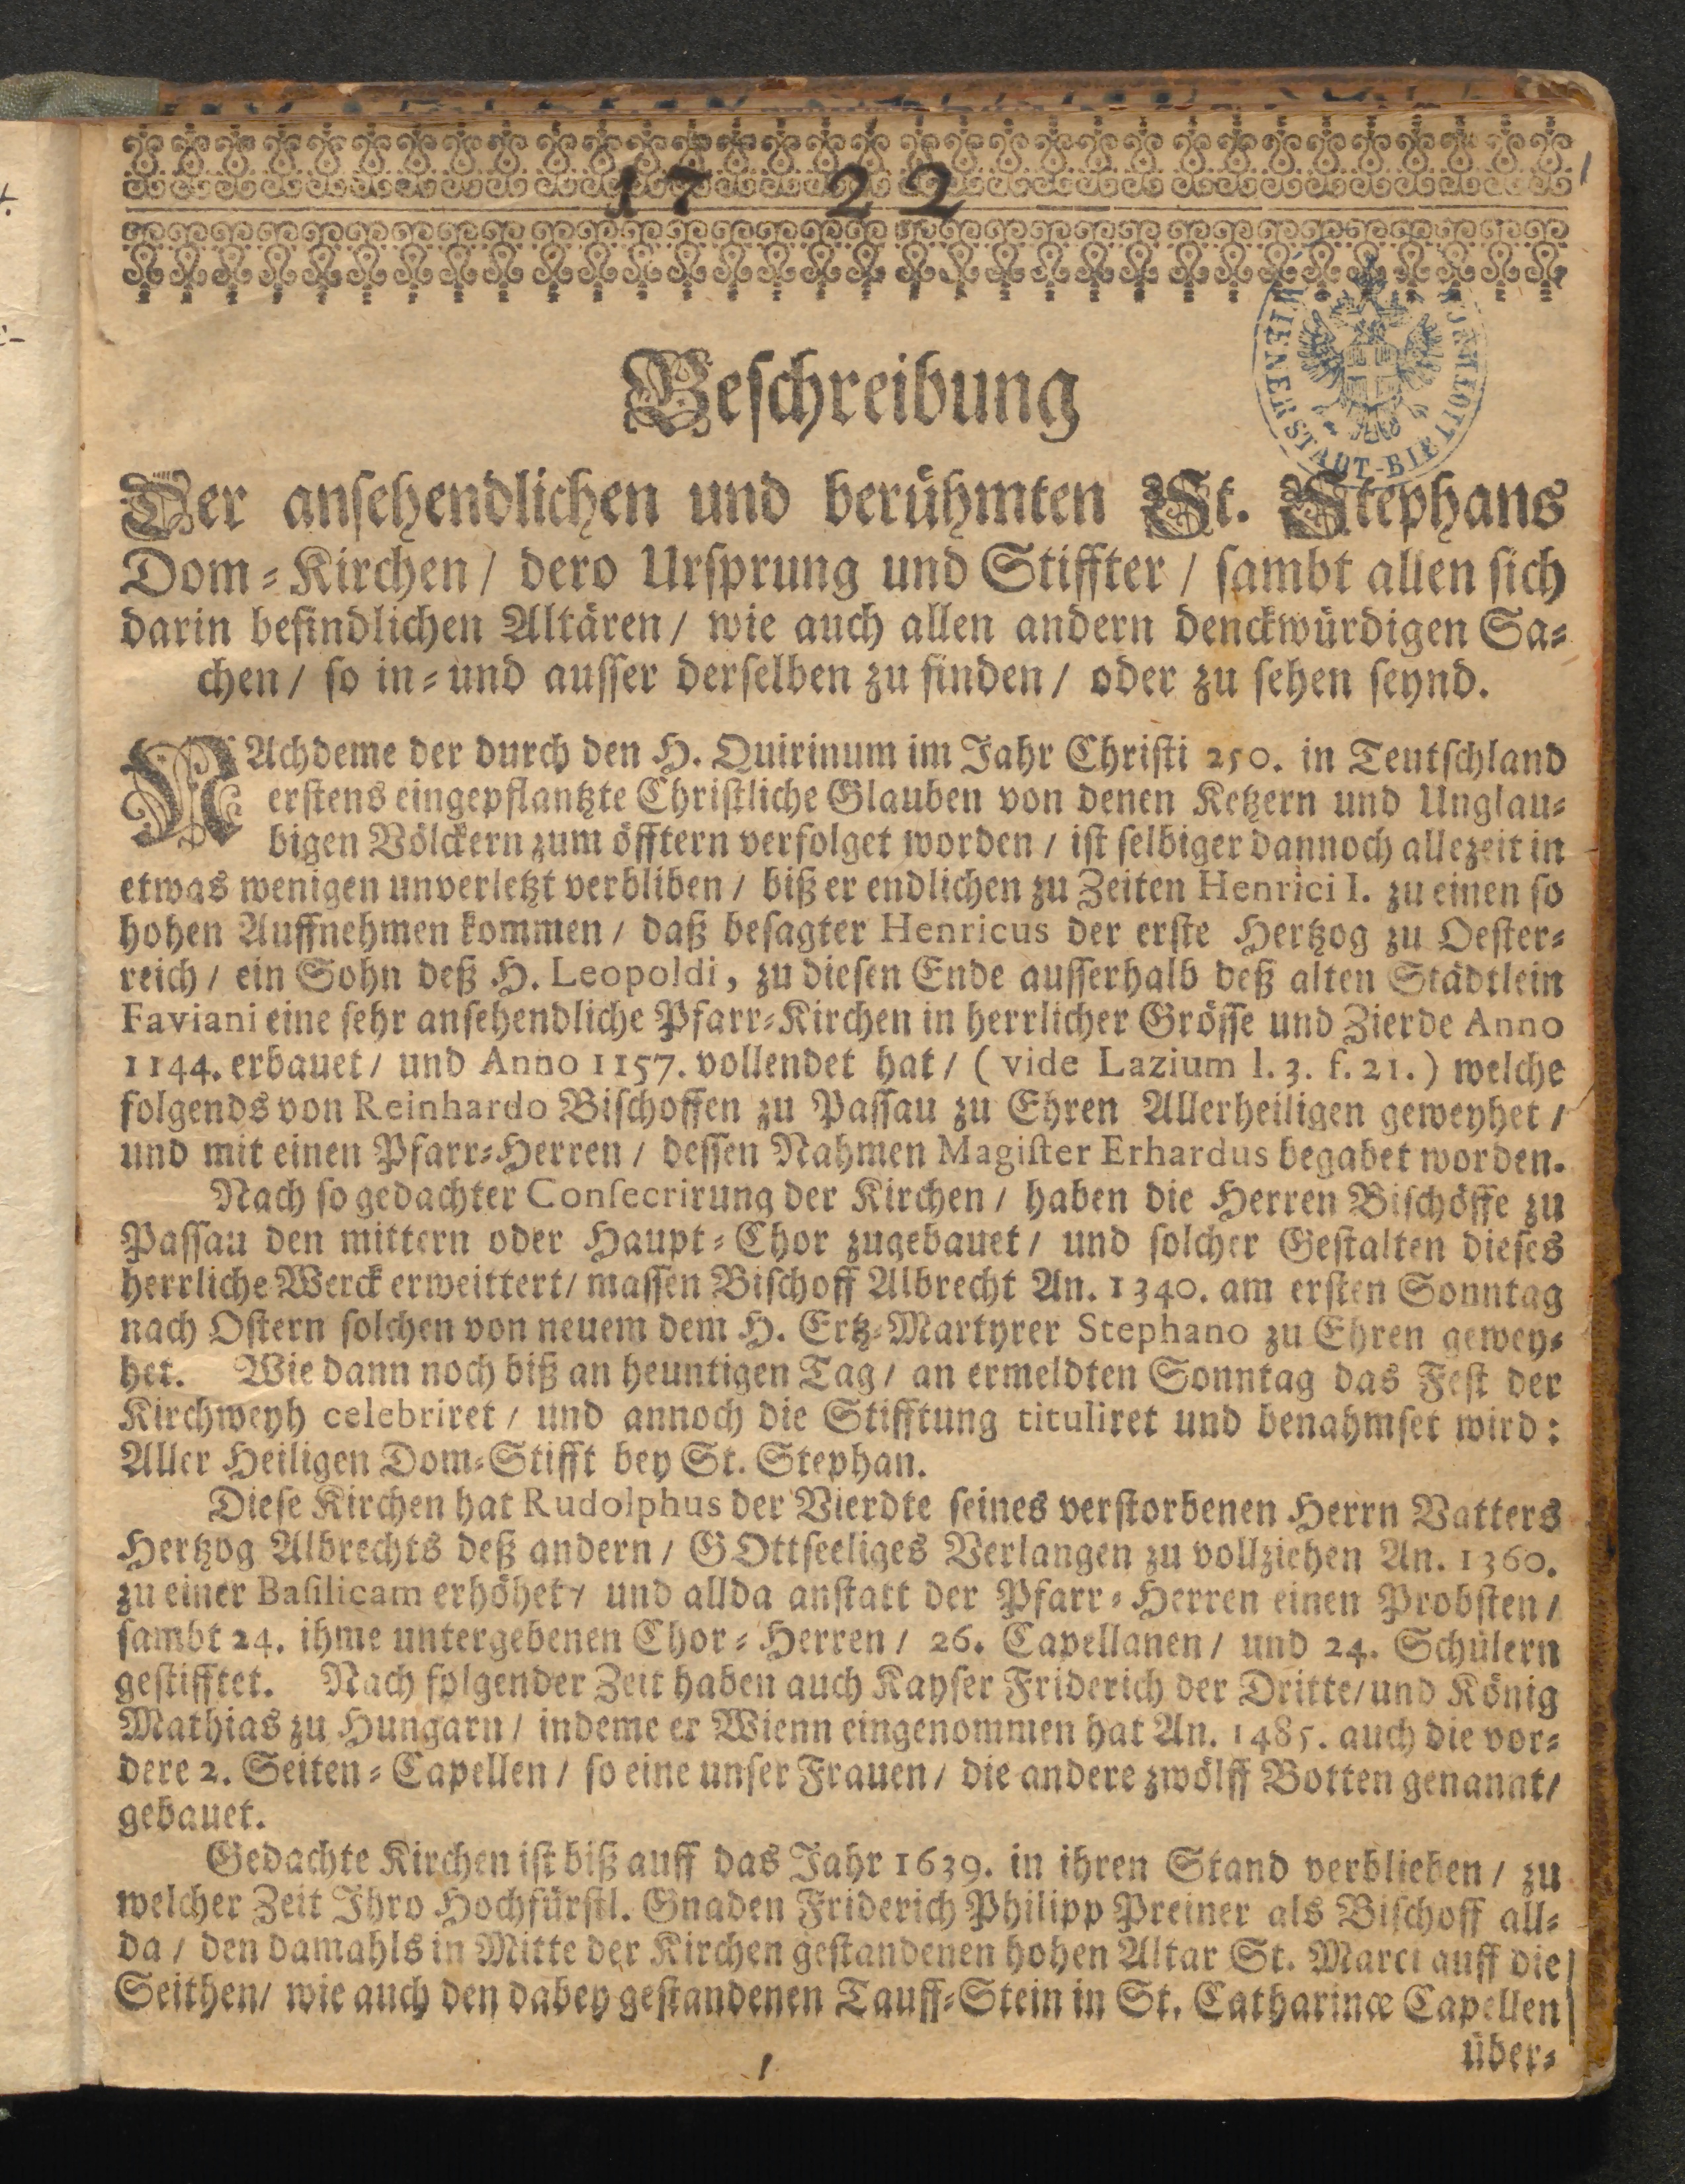 1
17 22
WIENER STADT-BIBLIOTHEK
Beschreibung
Der ansehendlichen und berühmten St. Stephans
Dom-Kirchen / dero Ursprung und Stiffter / sambt allen sich
darin befindlichen Altären / wie auch allen andern denckwürdigen Sa-
chen / so in- und ausser derselben zu finden / oder zu sehen seynd.
NAchdeme der durch den H. Quirinum im Jahr Christi 250. in Teutschland
erstens eingepflantzte Christliche Glauben von denen Ketzern und Unglau-
bigen Völckern zum öfftern verfolget worden / ist selbiger dannoch allezeit in
etwas wenigen unverletzt verbliben / biß er endlichen zu Zeiten Henrici I. zu einen so
hohen Auffnehmen kommen / daß besagter Henricus der erste Hertzog zu Oester-
reich / ein Sohn deß H. Leopoldi, zu diesen Ende ausserhalb deß alten Städtlein
Faviani eine sehr ansehendliche Pfarr-Kirchen in herrlicher Grösse und Zierde Anno
1144. erbauet / und Anno 1157. vollendet hat / ( vide Lazium l. 3. f. 21. ) welche
folgends von Reinhardo Bischoffen zu Passau zu Ehren Allerheiligen geweyhet /
und mit einen Pfarr-Herren / dessen Nahmen Magister Erhardus begabet worden.
Nach so gedachter Consecrirung der Kirchen / haben die Herren Bischöffe zu
Passau den mittern oder Haupt-Chor zugebauet / und solcher Gestalten dieses
herrliche Werck erweittert / massen Bischoff Albrecht An. 1340. am ersten Sonntag
nach Ostern solchen von neuem dem H. Ertz-Martyrer Stephano zu Ehren gewey-
het. Wie dann noch biß an heuntigen Tag / an ermeldten Sonntag das Fest der
Kirchweyh celebriret / und annoch die Stifftung tituliret und benahmset wird:
Aller Heiligen Dom-Stifft bey St. Stephan.
Diese Kirchen hat Rudolphus der Vierdte seines verstorbenen Herrn Vatters
Hertzog Albrechts deß andern / GOttseeliges Verlangen zu vollziehen An. 1360.
zu einer Basilicam erhöhet / und allda anstatt der Pfarr-Herren einen Probsten /
sambt 24. ihme untergebenen Chor-Herren / 26. Capellanen / und 24. Schülern
gestifftet. Nach folgender Zeit haben auch Kayser Friderich der Dritte / und König
Mathias zu Hungarn / indeme er Wienn eingenommen hat An. 1485. auch die vor-
dere 2. Seiten-Capellen / so eine unser Frauen / die andere zwölff Botten genannt /
gebauet.
Gedachte Kirchen ist biß auff das Jahr 1639. in ihren Stand verblieben / zu
welcher Zeit Ihro Hochfürstl. Gnaden Friderich Philipp Preiner als Bischoff all-
da / den damahls in Mitte der Kirchen gestandenen hohen Altar St. Marci auff die
Seithen / wie auch den dabey gestandenen Tauff-Stein in St. Catharinæ Capellen
über-
1